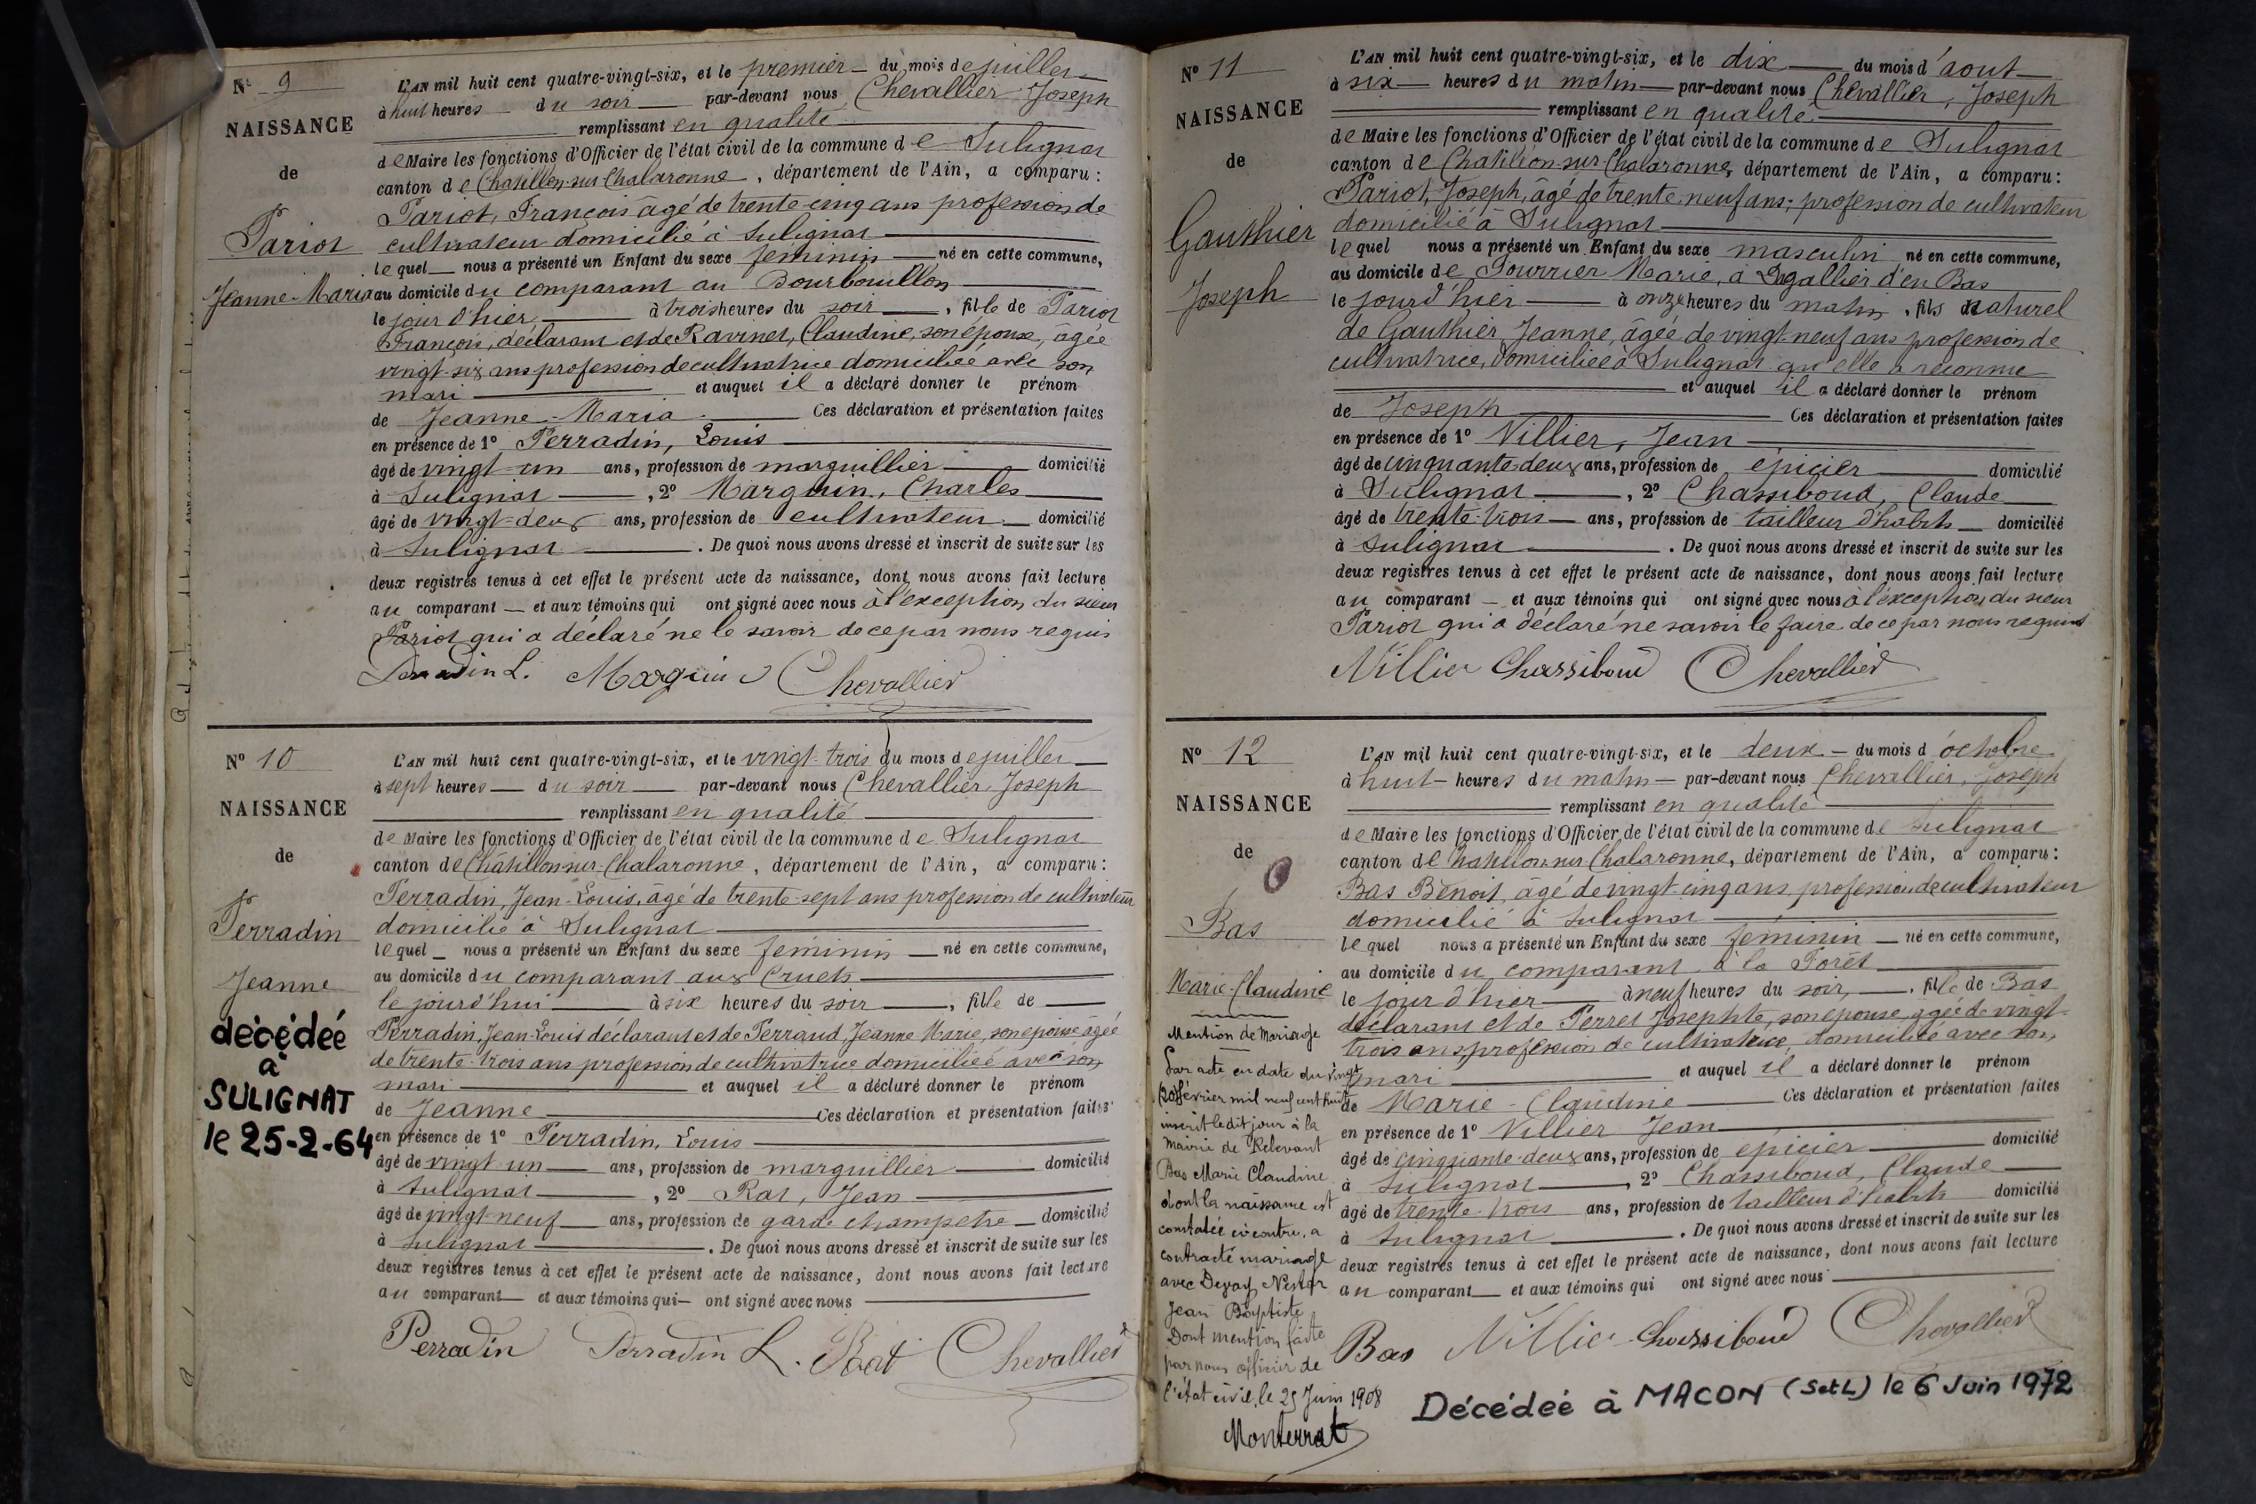 N° 9
NAISSANCE
de
Pariot
Jeanne-Maria
L'AN mil huit cent quatre-vingt-six, et le premier du mois de juillet
à huit heures du soir par-devant nous Chevallier Joseph
remplissant en qualité
de Maire les fonctions d'Officier de l'état civil de la commune de Sulignat
canton de Châtillon-sur-Chalaronne, département de l'Ain, a comparu :
Pariot, François âgé de trente-cinq ans profession de
cultivateur domicilié à Sulignat
lequel nous a présenté un Enfant du sexe féminin né en cette commune,
au domicile du comparant au Bourbouillon
le jour d'hier à trois heures du soir, fille de Pariot
François, déclarant et de Ravinet, Claudine, son épouse, âgée
vingt-six ans profession de cultivatrice domiciliée avec son
mari et auquel il a déclaré donner le prénom
de Jeanne-Maria Ces déclaration et présentation faites
en présence de 1° Perradin, Louis
âgé de vingt-un ans, profession de marguillier domicilié
à Sulignat, 2° Marguin, Charles
âgé de vingt-deux ans, profession de cultivateur domicilié
à Sulignat. De quoi nous avons dressé et inscrit de suite sur les
deux registres tenus à cet effet le présent acte de naissance, dont nous avons fait lecture
au comparant et aux témoins qui ont signé avec nous à l'exception du sieur
Pariot qui a déclaré ne le savoir de ce par nous requis
Perradin L. Marguin Chevallier
N° 10
NAISSANCE
de
Perradin
Jeanne
décédée
à
SULIGNAT
le 25-2-64
L'AN mil huit cent quatre-vingt-six, et le vingt-trois du mois de juillet
à sept heures du soir par-devant nous Chevallier Joseph
remplissant en qualité
de Maire les fonctions d'Officier de l'état civil de la commune de Sulignat
canton de Châtillon-sur-Chalaronne, département de l'Ain, a comparu :
Perradin, Jean-Louis, âgé de trente-sept ans profession de cultivateur
domicilié à Sulignat
lequel nous a présenté un Enfant du sexe féminin né en cette commune,
au domicile du comparant aux Cruets
le jourd'hui à six heures du soir, fille de
Perradin, Jean-Louis déclarant et de Perraud, Jeanne Marie, son épouse âgée
de trente-trois ans profession de cultivatrice domiciliée avec son
mari et auquel il a déclaré donner le prénom
de Jeanne Ces déclaration et présentation faites
en présence de 1° Perradin, Louis
âgé de vingt-un ans, profession de marguillier domicilié
à Sulignat, 2° Rat, Jean
âgé de vingt-neuf ans, profession de garde champetre domicilié
à Sulignat. De quoi nous avons dressé et inscrit de suite sur les
deux registres tenus à cet effet le présent acte de naissance, dont nous avons fait lecture
au comparant et aux témoins qui ont signé avec nous
Perradin Perradin L. Rat Chevallier
N° 11
NAISSANCE
de
Gauthier
Joseph
L'AN mil huit cent quatre-vingt-six, et le dix du mois d'aout
à six heures du matin par-devant nous Chevallier, Joseph
remplissant en qualité
de Maire les fonctions d'Officier de l'état civil de la commune de Sulignat
canton de Châtillon-sur-Chalaronne, département de l'Ain, a comparu :
Pariot, Joseph, âgé de trente-neuf ans, profession de cultivateur
domicilié à Sulignat
lequel nous a présenté un Enfant du sexe masculin né en cette commune,
au domicile de Pourrier Marie, à Dagallier d'en Bas
le jour d'hier à onze heures du matin, fils naturel
de Gauthier Jeanne, âgée de vingt-neuf ans profession de
cultivatrice, domiciliée à Sulignat qu'elle a reconnue
et auquel il a déclaré donner le prénom
de Joseph Ces déclaration et présentation faites
en présence de 1° Villier, Jean
âgé de cinquante-deux ans, profession de épicier domicilié
à Sulignat, 2° Chassiboud, Claude
âgé de trente-trois ans, profession de tailleur d'habits domicilié
à Sulignat. De quoi nous avons dressé et inscrit de suite sur les
deux registres tenus à cet effet le présent acte de naissance, dont nous avons fait lecture
au comparant et aux témoins qui ont signé avec nous à l'exception du sieur
Pariot qui a déclaré ne savoir le faire de ce par nous requis
Villier Chassiboud Chevallier
N° 12
NAISSANCE
de
Bas
Marie-Claudine
Mention de Mariage
Par acte en date du vingt
(20) février mil neuf cent huit
inscrit le dit jour à la
mairie de Relevant
Bas Marie Claudine
dont la naissance est
constatée ci-contre, a
contracté mariage
avec Nestor
Jean Baptiste
Dont mention faite
par nous officier de
l'état civil, le 25 Juin 1908
Monterrat
L'AN mil huit cent quatre-vingt-six, et le deux du mois d'octobre
à huit heures du matin par-devant nous Chevallier, Joseph
remplissant en qualité
de Maire les fonctions d'Officier de l'état civil de la commune de Sulignat
canton de Châtillon-sur-Chalaronne, département de l'Ain, a comparu :
Bas Benoit, âgé de vingt-cinq ans, profession de cultivateur
domicilié à Sulignat
lequel nous a présenté un Enfant du sexe féminin né en cette commune,
au domicile du comparant à la Forêt
le jour d'hier à neuf heures du soir, fille de Bas
déclarant et de Perret Josephte, son épouse âgée de vingt-
trois ans, profession de cultivatrice, domiciliée avec son
mari et auquel il a déclaré donner le prénom
de Marie-Claudine Ces déclaration et présentation faites
en présence de 1° Villier Jean
âgé de cinquante-deux ans, profession de épicier domicilié
à Sulignat, 2° Chassiboud, Claude
âgé de trente-trois ans, profession de tailleur d'habits domicilié
à Sulignat. De quoi nous avons dressé et inscrit de suite sur les
deux registres tenus à cet effet le présent acte de naissance, dont nous avons fait lecture
au comparant et aux témoins qui ont signé avec nous
Bas Villier Chassiboud Chevallier
Décédée à MACON (S et L) le 6 Juin 1972